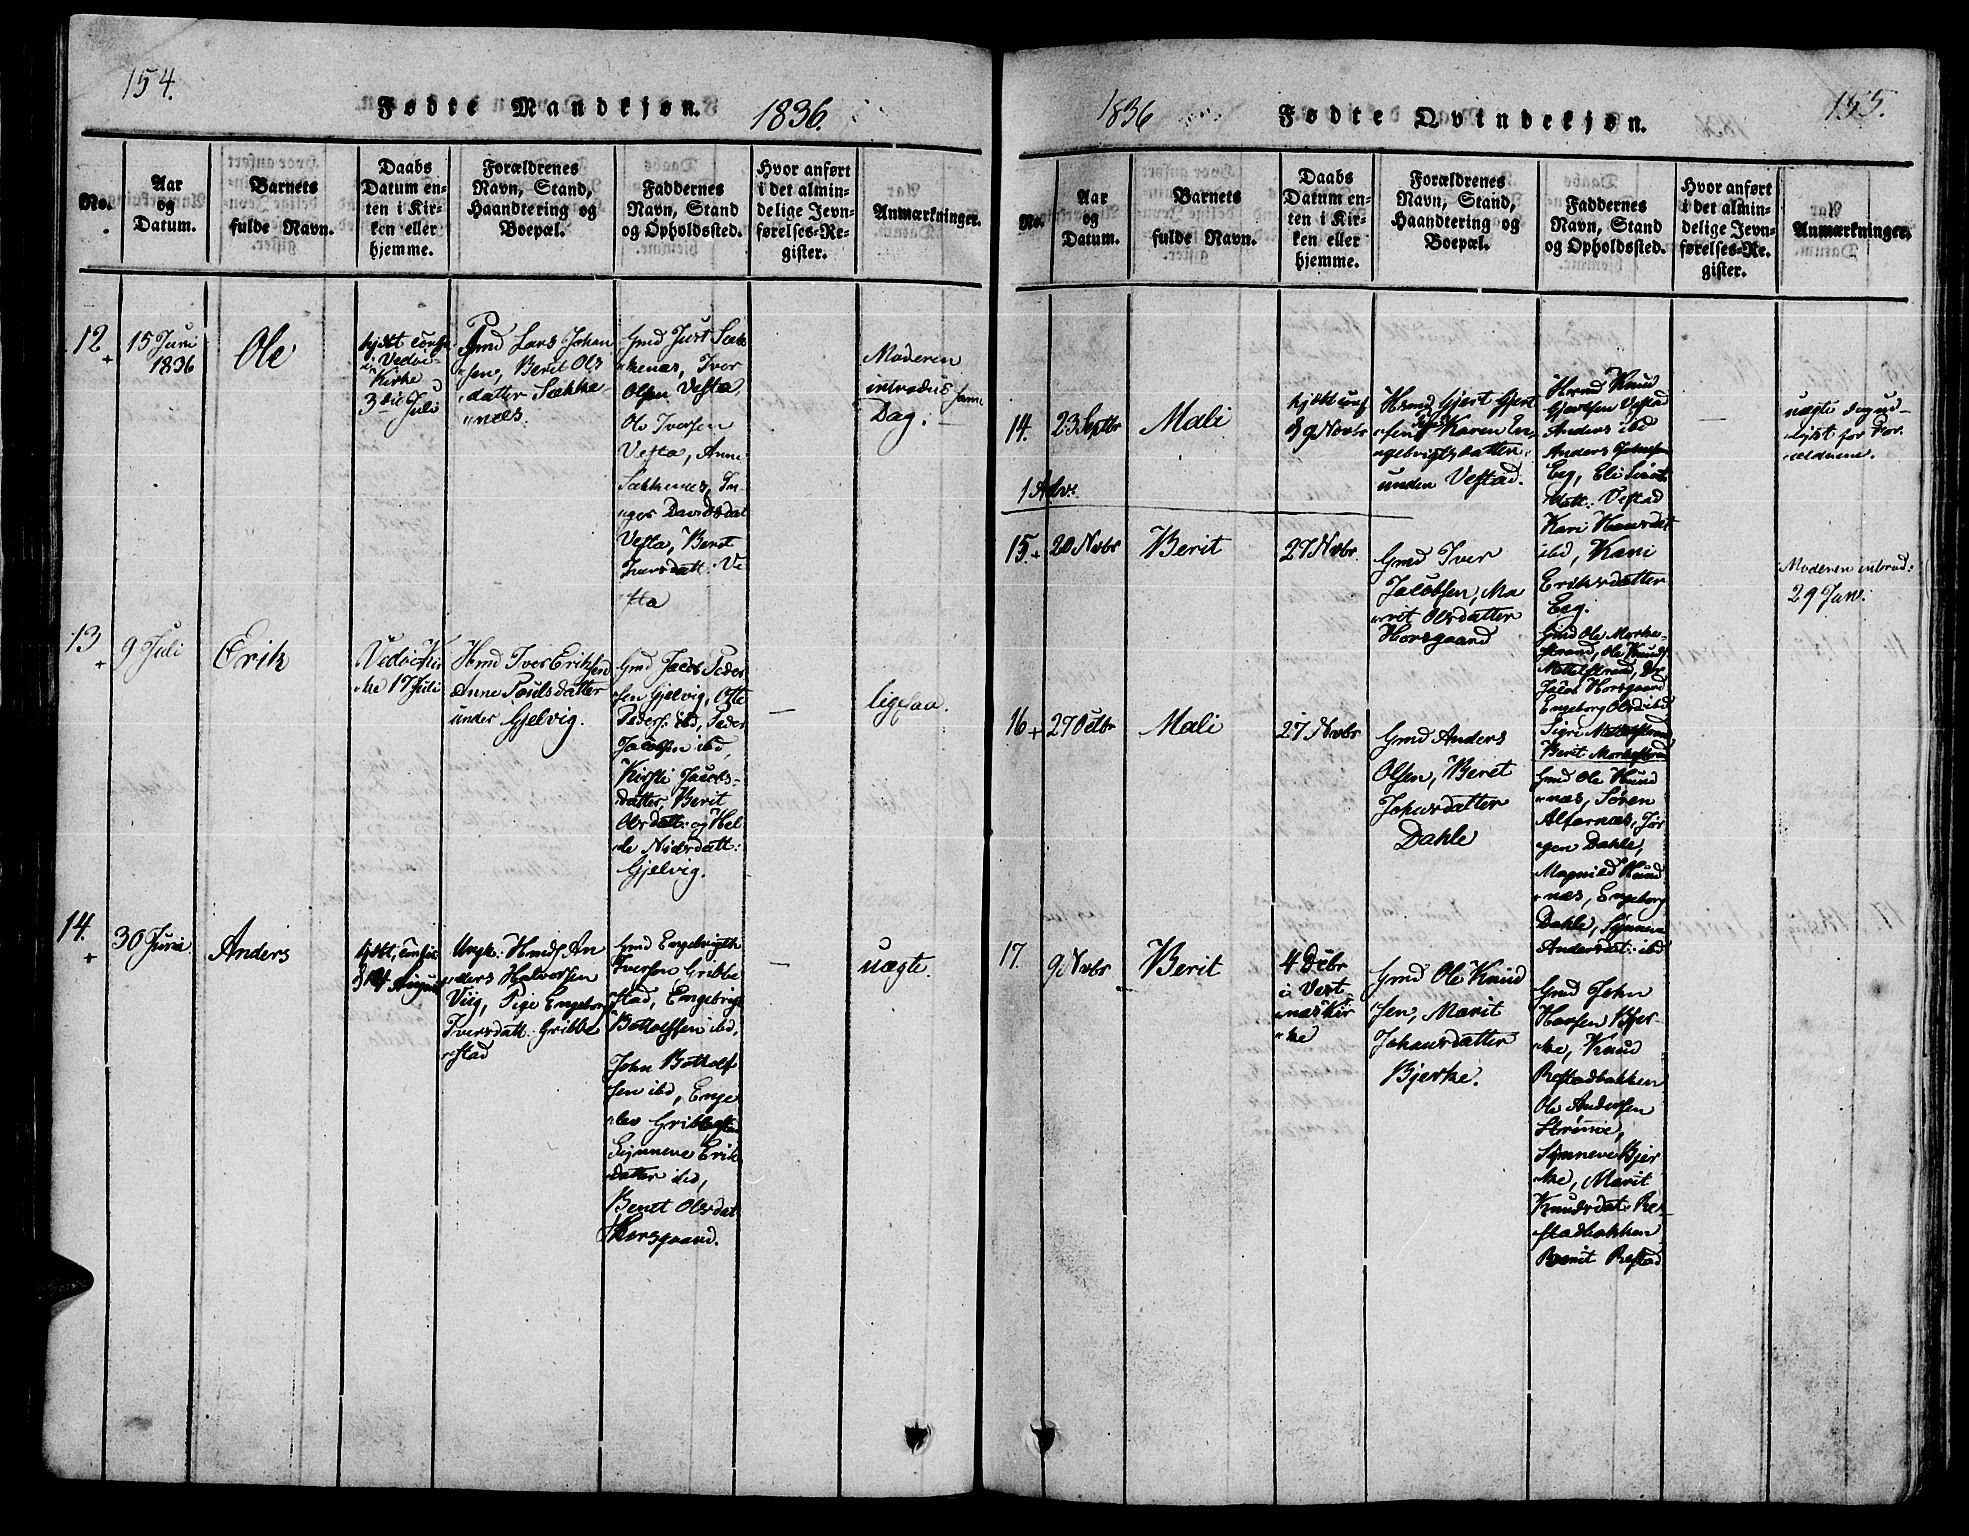 154.
Fødte Mandkjøn. 1836.
No.
Aar
og
Datum.
Barnets
fulde Navn.
Daabs
Datum en-
ten i Kir-
ken eller
hjemme.
Forældrenes
Navn, Stand,
Haandtering og
Boepæl.
Faddernes
Navn, Stand
og Opholdssted.
Hvor anført
i det almin-
delige Jevn-
førelses-Re-
gister.
Anmærkninger.
12
+
15 Juni
1836
Ole
hjdbt
i Vedøi
Kirke
3die Juli
Gmd Lars Johan
sen, Berit Ols
datter Sække-
næs.
Gmd Just Sæk
kenæs, Iver
Olsen Vestad,
Ole Iversen
Vesta, Anne
Sækkenæs, In-
ger Davidsdat
Vesta, Berit
Iversdatt: Ve
sta
Moderen
introdus samme
Dag.
13
+
9 Juli
Erik
Vedøe Kir
ke 17 Juli
Hmd Iver Eriksen
Anne Poulsdatter
under Gjelvig.
Gmd Jacob Peder
sen Gjelvig, Otte
Peders. ibd, Peder
Jacobsen ibd,
Kirsti Jacobs-
datter, Berit
Olsdatt: og Hel-
le Nielsdatt:
Gjelvig.
—
ligesaa.
14.
+
30 Juni
Anders
hjdbt,
August
Ungk: An
ders Halvorsen
Viig, Pige Engeborg
Iversdatt: Gribbe
stad
Gmd Engebrigth
Iversen Gribbe
stad, Emgebrigt
Bottolfsen ibd,
John Bottolf
sen ibd, Enge
lev Gribbesta
Synneve Erik
datter ibd,
Berit Olsdat
Horsgaard.
—
uægte.
1836 Fødte Qvindekjøn. 155.
No.
Aar
og
Datum.
Barnets
fulde Navn.
Daabs
Datum en-
ten i Kir-
ken eller
hjemme.
Forældrenes
Navn, Stand,
Haandtering og
Boepæl.
Faddernes
Navn, Stand
og Opholdssted.
Hvor anført
i det almin-
delige Jevn-
førelses-Re-
gister.
Anmærkninger.
14.
23 Septbr
Mali
hjdbt conf
d 9 Novbr
Gjert Gjert
sen, Karen En-
gebrigtsdatter
under Vestad.
Hmd Knud
Gjertsen Vestad
Anders ibd
Anders Johnsen
Eeg, Eli
datt: Vestad
Kari Hansdat
ibd, Kari
Eriksdatter
Eeg.
—
uægte
lyst for For
ældrene.
1 Adv:
15
+
20 Nvbr
Berit
27 Nvbr
Gmd Iver
Jacobsen, Ma
rit Olsdatter
Horsgaard
Gmd Ole Morke-
strand, Ole Knuds
Mittelstrand,
Jacob Horsgaard
Engeborg Olsd ibd
Sigri
Berit Morkestrand
Moderen introd:
29 Jan:
16
+
27 Octbr
Mali
27 Nvbr
Gmd Anders
Olsen, Berit
Johnsdatter
Dahle
Gmd Ole Knud
næs, Søren
Alfarnæs, Jør
gen Dahle,
Magnild Knud
næs, Engeborg
Dahle, Synneve
Andersdat: ibd
17.
9 Nvbr
Berit
4 Debr
i Vest-
næs Kir
ke
Gmd Ole Knud
sen, Marit
Johansdatter
Bjerke.
Gmd John
Hansen Bjer-
ke, Knud
Restadbakken
Ole Andersen
Strømme,
Synneve Bjer
ke, Marit
Knudsdat: Re-
stadbakken
Berit Restad